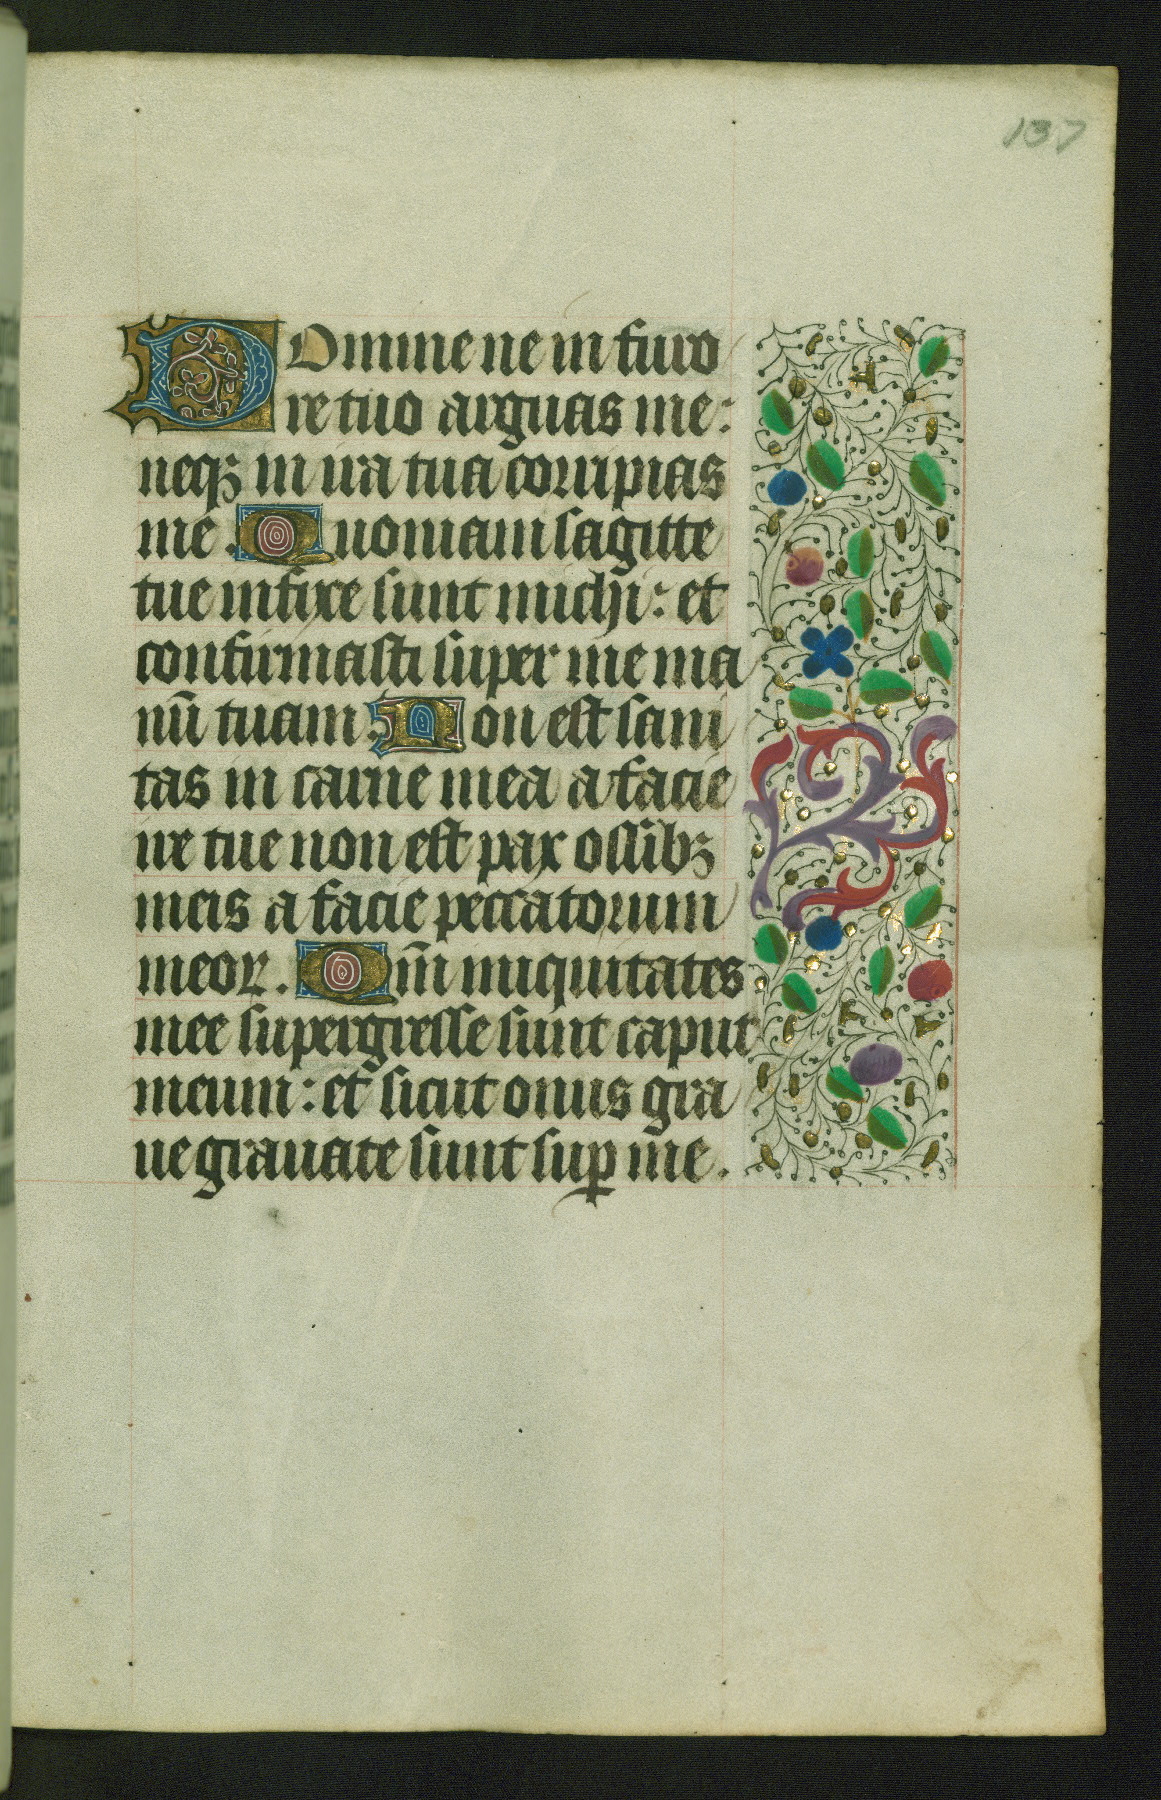 137
Domine ne in furo
re tuo arguas me:
neqꝫ in ira tua corripias
me. Quoniam sagitte
tue infixe sunt michi: et
confirmasti super me ma
nū tuam: Non est sani
tas in carne mea a facie
ire tue non est pax ossibꝫ
meis a facie peccatorum
meoꝝ. Qm̄ iniquitates
mee supergresse sunt caput
meum: et sicut onus gra
ue grauate sunt suꝑ me.